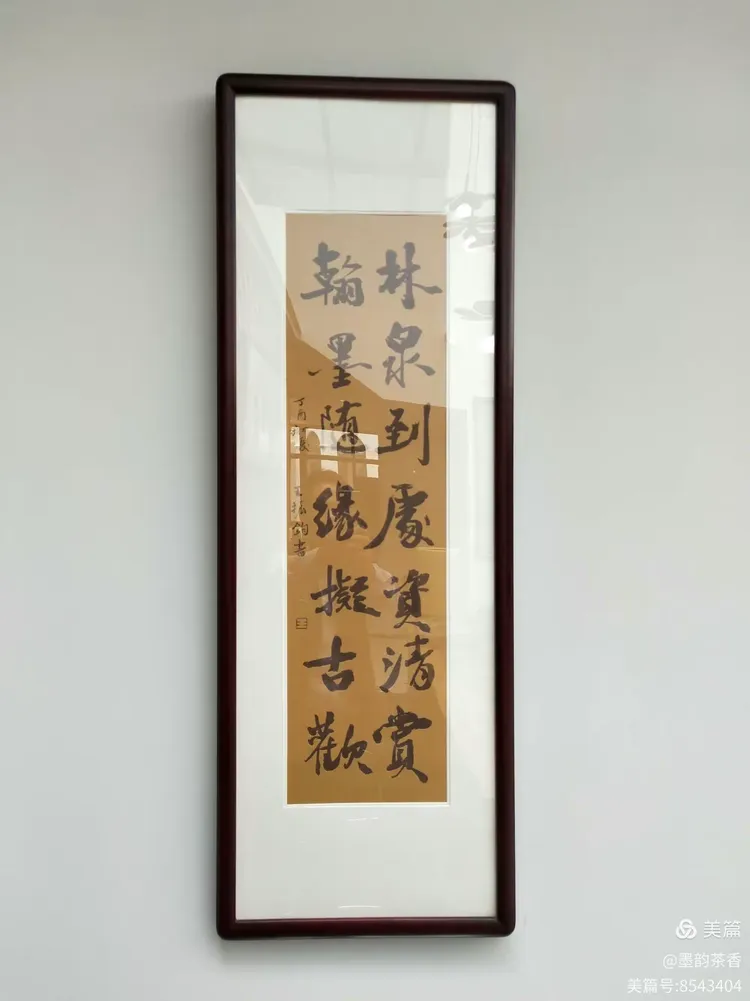 林泉到處資清賞
翰墨随緣擬古歡
丁酉
王
美篇
@墨韵茶香
美篇号:8543404